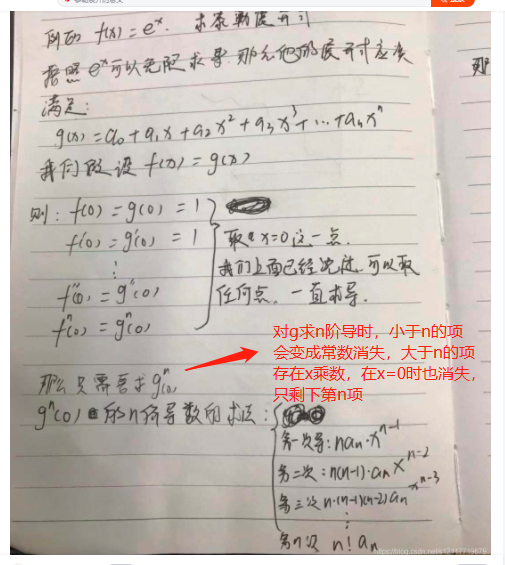 所的 f(x)=e^x. 求泰勒展开式
按照 e^x 可以无限求导. 那么他的展开式应该
满足:
g(x)=a0+a1x+a2x^2+a3x^3+…+anx^n
我们假设 f(x)=g(x)
则: f(0)=g(0)=1
f'(0)=g'(0)=1 取 x=0这一点.
⋮ 我们上面已经说过, 可以取
f''(0)=g''(0) 任何点. 一直求导.
f^n(0)=g^n(0)
对g求n阶导时，小于n的项
会变成常数消失，大于n的项
存在x乘数，在x=0时也消失，
只剩下第n项
那么只需要求 g^n(0)
g^n(0) 的n阶导数的求法:
第一次导: nan·x^n-1
第二次: n(n-1)·an x^n-2
第三次 n·(n-1)(n-2)an x^n-3
⋮
第n次 n! an